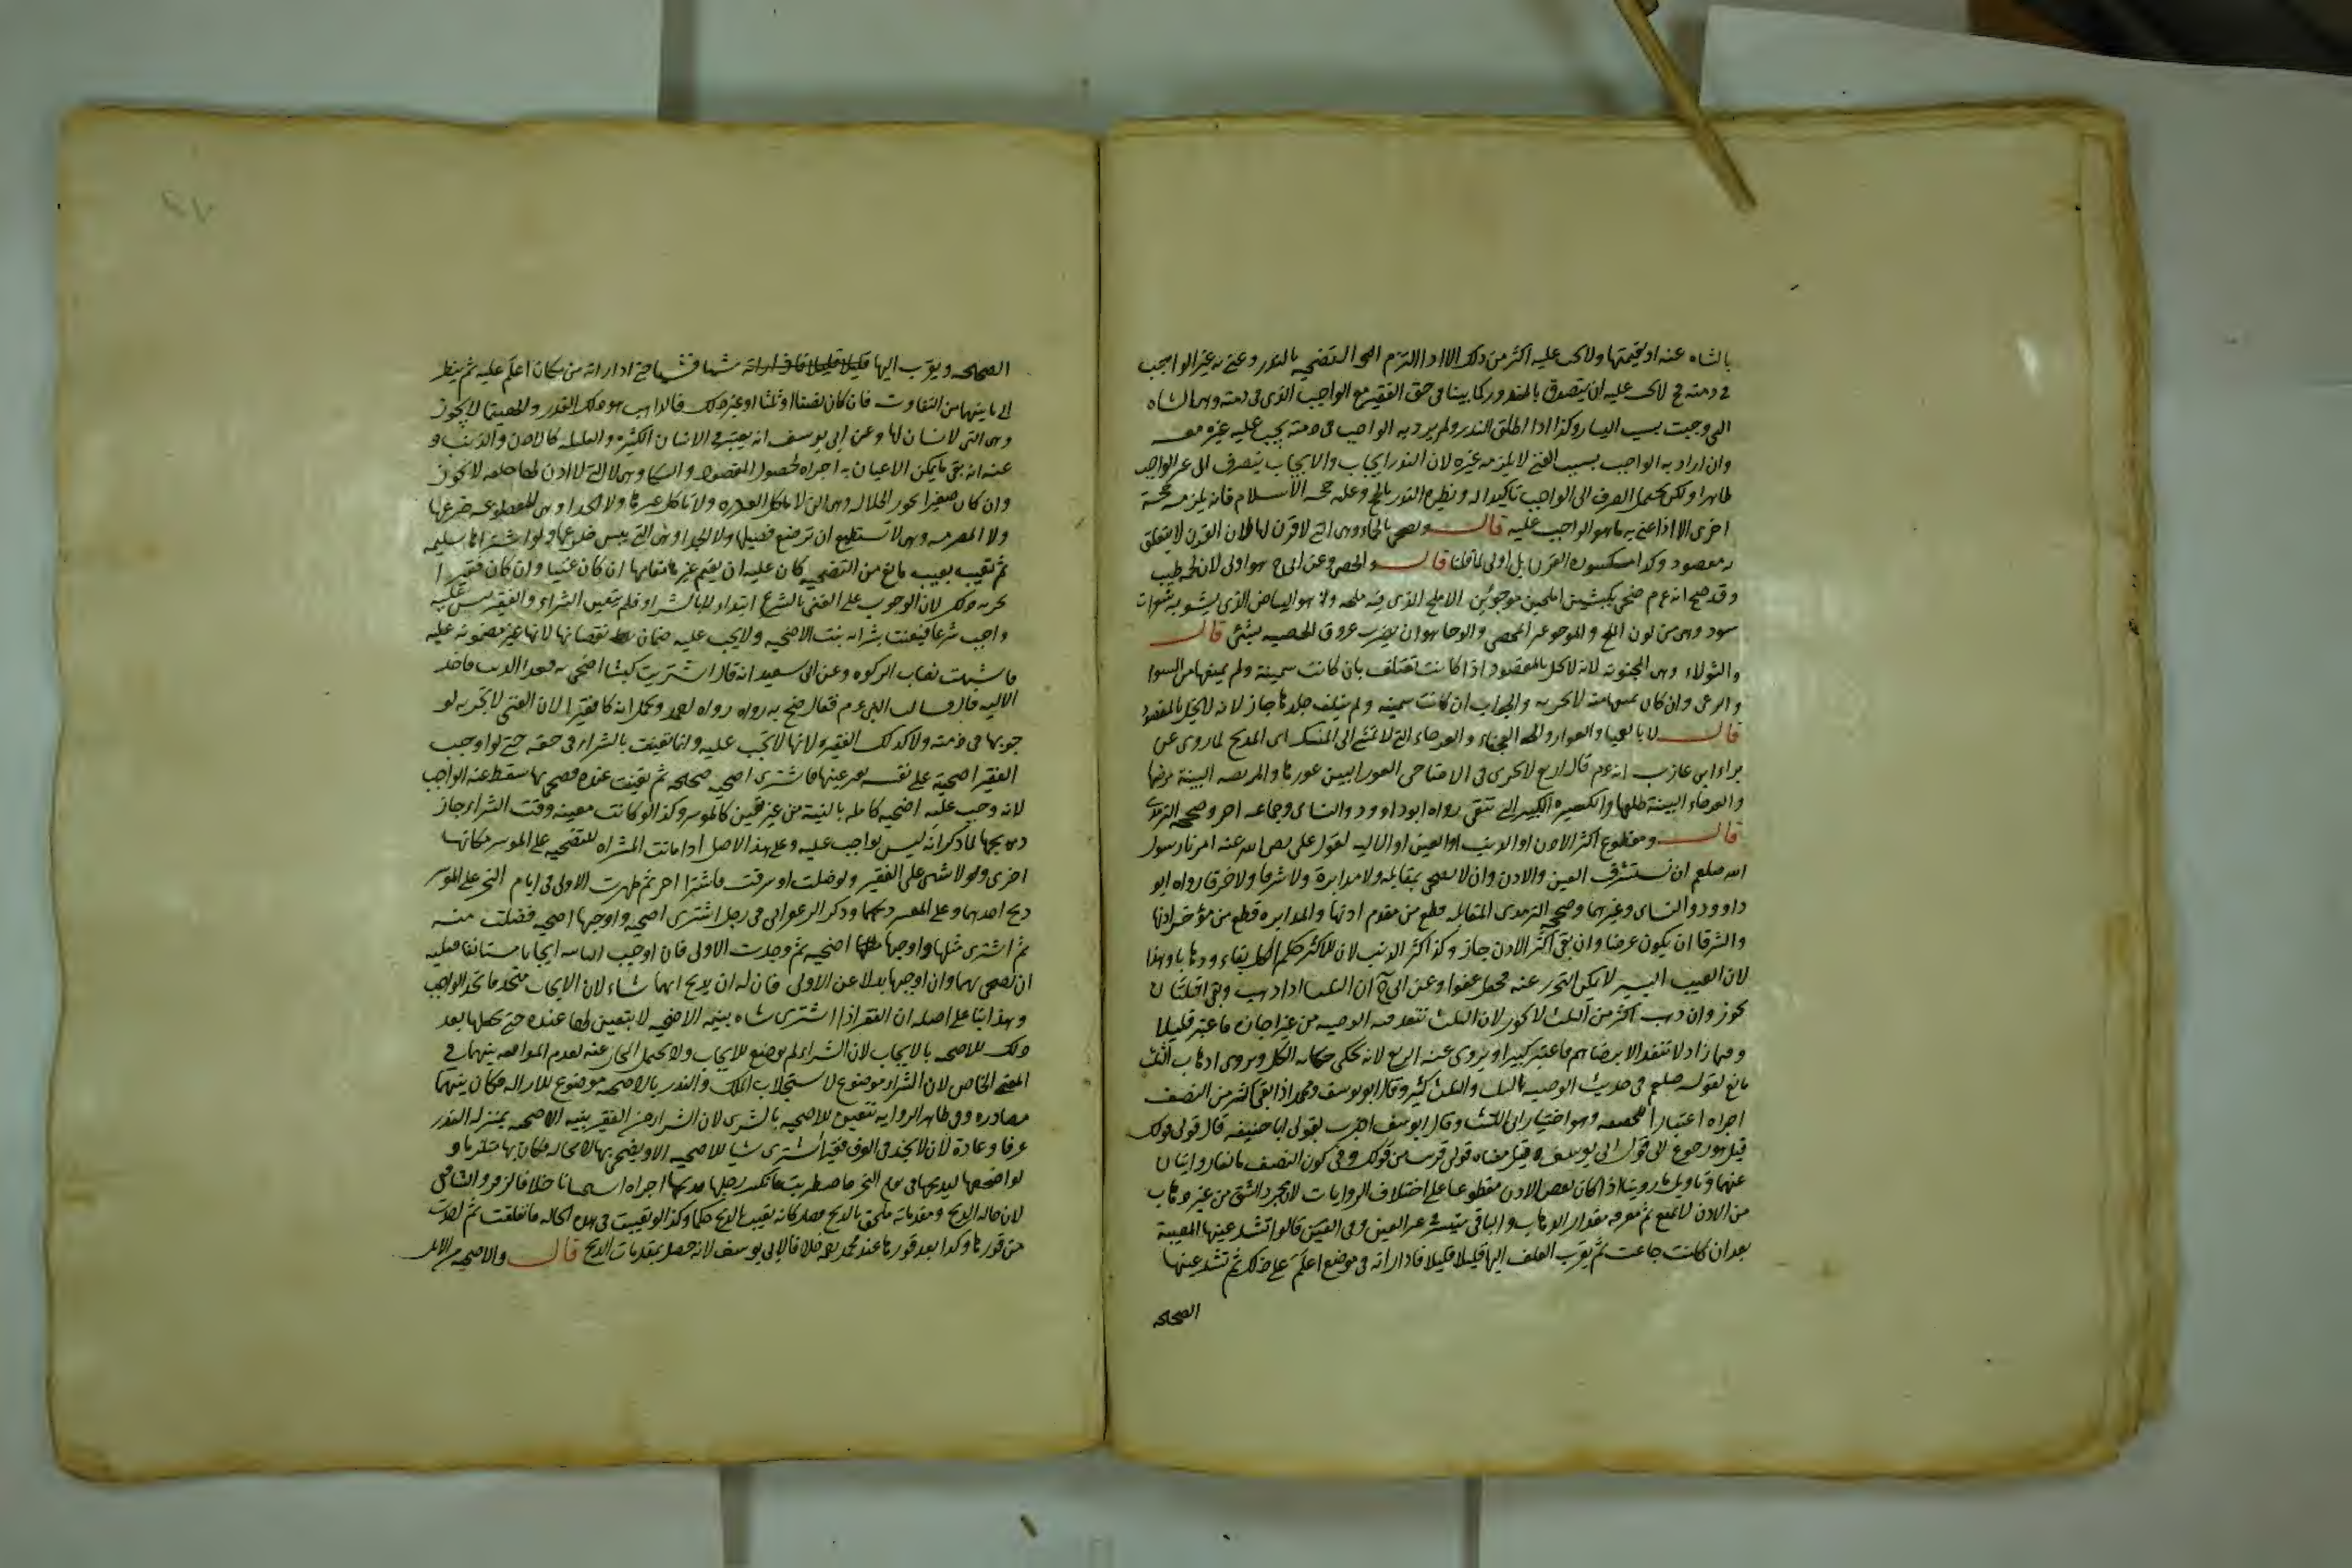 بالشاه عنه او بقيمتها ولا يجب عليه اكثر من ذلك الا اذا التزم التضحيه بالنذر وعنى به غير الواجب
في ذمته لا يجب عليه ان يتصدق بالمنذور كما بينا في حق الفقير مع الواجب الذي في ذمته وهي الشاه
التي وجبت بسبب اليسار وكذا اذا اطلق النذر ولم يرد به الواجب في ذمته يجب عليه غيره معه
وان اراد به الواجب بسبب الغنى لا يلزمه غيره لان النذر ايجاب والايجاب ينصرف الى غير الواجب
ظاهرا ولكن يحتمل الصرف الى الواجب تاكيدا له ونظيره النذر بالحج وعليه حجه الاسلام فانه يلزمه حجة
اخرى الا اذا عنى به ما هو الواجب عليه قال ويضحي بالجماء وهي التي لا قرن لها لان القرن لا يتعلق
به مقصود وكذا مكسورة القرن بل اولى لما قلنا قال والخصي وعن ابي ح هو اولى لان لحمه اطيب
وقد صح انه عم ضحى بكبشين املحين موجوئين الاملح الذي فيه ملحه وهو البياض الذي يشوبه شعرات
سود وهي من لون الملح والموجو غير المخصي والوجا هو ان يضرب عروق الخصيه بشئ قال
والثولاء وهي المجنونه لانه لا يخل بالمقصود اذا كانت تعتلف بان كانت سمينة ولم يمنعها من السوم
والرعي وان كان يمنعها منه لا تجزيه والجرباء ان كانت سمينه ولم يتلف جلدها جاز لانه لا يخل بالمقصود
قال لا بالعميا والعوراء والعجفاء والعرجاء التي لا تمشي الى المنسك اي المذبح لما روي عن
براء ابن عازب انه عم قال اربع لا تجزي في الاضاحي العوراء البين عورها والمريضه البينة مرضها
والعرجاء البينة ظلعها والكسيره التي لا تنقي رواه ابو داوود والنساي وجماعه اخر وصححه الترمذي
قال ومقطوع اكثر الاذن او الذنب او العين او الاليه لقول علي رضي الله عنه امرنا رسول
الله صلعم ان نستشرف العين والاذن وان لا نضحي بمقابله ولا مدابرة ولا شرقا ولا خرقا رواه ابو
داوود والنساي وغيرهما وصححه الترمذي المقابله قطع من مقدم اذنها والمدابره قطع من مؤخر اذنها
والشرقا ان يكون عرضا وان بقي اكثر الاذن جاز وكذا اكثر الذنب لان للاكثر حكم الكل بقاء وذهابا وهذا
لان العيب اليسير لا يمكن التحرز عنه فجعل عفوا وعن ابي ح ان الثلث اذا ذهب وبقي الثلثان
يجوز وان ذهب اكثر من الثلث لا يجوز لان الثلث تنفذ فيه الوصيه من غير اجازه فاعتبر قليلا
وفيما زاد لا تنفذ الا برضاهم فاعتبر كثيرا ويروى عنه الربع لانه يحكي حكايه الكل ويروى ان ذهاب الثلث
مانع لقوله صلعم في حديث الوصيه بالثلث والثلث كثير وقال ابو يوسف ومحمد اذا بقي اكثر من النصف
اجزاه اعتبارا للحقيقه وهو اختيار ابي الليث وقال ابو يوسف اخبرت بقولي ابا حنيفه قال قولي قولك
قيل هو رجوع الى قول ابي يوسف وقيل معناه قولي قريب من قولك وفي كون النصف مانعا روايتان
عنهما وتاويل ما روينا اذا كان بعض الاذن مقطوعا على اختلاف الروايات لان مجرد الشق من غير ذهاب
من الاذن لا يمنع ثم معرفه مقدار الذهاب والباقي متيسر في غير العين وفي العين قالوا تشد عينها المعيبة
بعد ان كانت جاعت ثم يقرب العلف اليها قليلا قليلا فاذا راته في موضع اعلم على ذلك ثم تشد عينها
الصحيحه
الصحيحه ويقرب اليها شيا فشيا حتى اذا راته من مكان اعلم عليه ثم ينظر
الى ما بينهما من التفاوت فان كان نصفا او ثلثا او غير ذلك فالذاهب هو ذلك القدر والهتما لا يجوز
وهي التي لا اسنان لها وعن ابي يوسف انه يعتبر في الاسنان الكثره والقله كالاذن والذنب و
عنه انه بقي ما يمكن الاعتلاف به اجزاه لحصول المقصود والسكا وهي التي لا اذن لها خلقه لا تجوز
وان كان صغيرا يجوز والجلاله وهي التي لا تاكل الا العذره ولا تاكل غيرها ولا الجذا وهي المقطوعه ضرعها
ولا المصرمه وهي لا تستطيع ان ترضع فصيلها ولا الجدا وهي التي يبس ضرعها ولو اشتراها سليمه
ثم تعيب بعيب مانع من التضحيه كان عليه ان يقيم غيرها مقامها ان كان غنيا وان كان فقيرا
تجزيه ذلك لان الوجوب على الغني بالشرع ابتداء لا بالشراء فلم يتعين بالشراء والفقير ليس عليه
واجب شرعا فتعينت بشرائه بنية الاضحيه ولا يجب عليه ضمان نقصانها لانها غير مضمونه عليه
فاشبهت نصاب الزكوه وعن ابي سعيد انه قال اشتريت كبشا اضحي به فعدا الذئب فاخذ
الاليه قال فسالت النبي عم فقال ضح به رواه احمد ويحمل انه كان فقيرا لان الغني لا تجزيه لو
جوبها في ذمته ولا كذلك الفقير لانها لا تجب عليه وانما تعينت بالشراء في حقه حتى لو اوجب
الفقير اضحية على نفسه بغير عينها فاشترى اضحيه صحيحه ثم تعيبت عنده فضحى بها سقط عنه الواجب
لانه وجب عليه اضحيه كامله بالنية من غير تعيين كالموسر وكذا لو كانت معيبه وقت الشراء جاز
ذبحها لما ذكر انه ليس بواجب عليه وعلى هذا الاصل اذا ماتت المشتراه للتضحيه على الموسر مكانها
اخرى ولا شئ على الفقير ولو ضلت او سرقت فاشترا اخرى ثم ظهرت الاولى في ايام النحر على الموسر
ذبح احدهما وعلى المعسر ذبحهما وذكر الزعفراني في رجل اشترى اضحيه واوجبها اضحيه فضلت منه
ثم اشترى مثلها واوجبها اضحيه ثم وجدت الاولى فان اوجب الثانيه ايجابا مستانفا فعليه
ان يضحي بهما وان اوجبها بدلا عن الاولى فان له ان يذبح ايهما شاء لان الايجاب متحد فاتحد الواجب
وهذا بناء على اصله ان الفقير اذا اشترى شاه بنيه الاضحيه لا يتعين لها عنده حتى يجعلها بعد
ذلك للاضحيه بالايجاب لان الشراء لم يوضع للايجاب ولا يحتمل المجاز عنه لعدم الموافقه بينهما في
المعنى الخاص لان الشراء موضوع لاستجلاب الملك والنذر بالاضحيه موضوع للازاله فكان بينهما
مضاده وفي ظاهر الروايه تتعين للاضحيه بالشرى لان الشراء من الفقير بنيه الاضحيه بمنزله النذر
عرفا وعادة لان لا يجد في العرف فقيرا اشترى شيا للاضحيه الا ويضحي بها لا محاله فكان بها ملتزما و
لو اضجعها ليذبحها في يوم النحر فاضطربت فانكسر رجلها فذبحها اجزاه استحسانا خلافا لزفر والشافعي
لان حاله الذبح ومقدماته ملحق بالذبح فصار كانه تعيب بالذبح حكما وكذا لو تعيبت في هذه الحاله فانفلتت ثم اخذت
من فورها وكذا بعد فورها عند محمد خلافا لابي يوسف لانه حصل بمقدمات الذبح قال والاضحيه من الابل